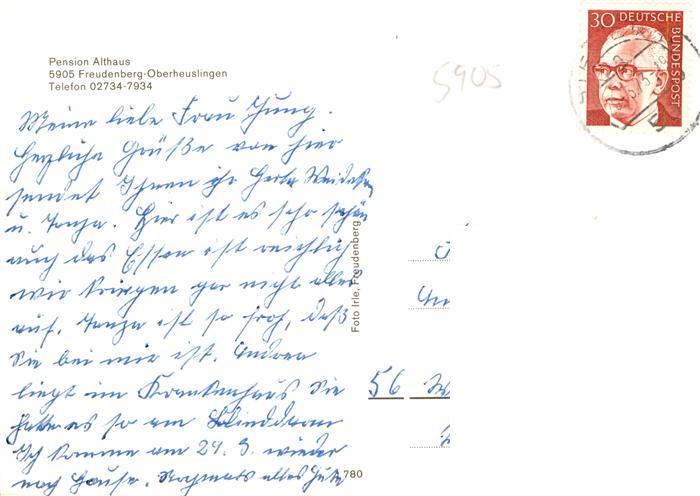 Pension Althaus
5905 Freudenberg-Oberheuslingen
Telefon 02734-7934
5905
30 DEUTSCHE BUNDESPOST
Meine liebe Frau Jung.
Herzliche Grüße von hier
sendet Ihnen ihr Herta
u. Tanja. Hier ist es sehr schön
auch das Essen ist reichlich
wir kriegen gar nicht alles
auf. Tanja ist so froh, daß
Sie bei mir ist. Andrea
liegt im Krankenhaus Sie
hatte es so am Blinddarm
Ich komme am 24. 3. wieder
nach Hause. Nochmals alles Gute
56 W
Foto Irle, Freudenberg
780